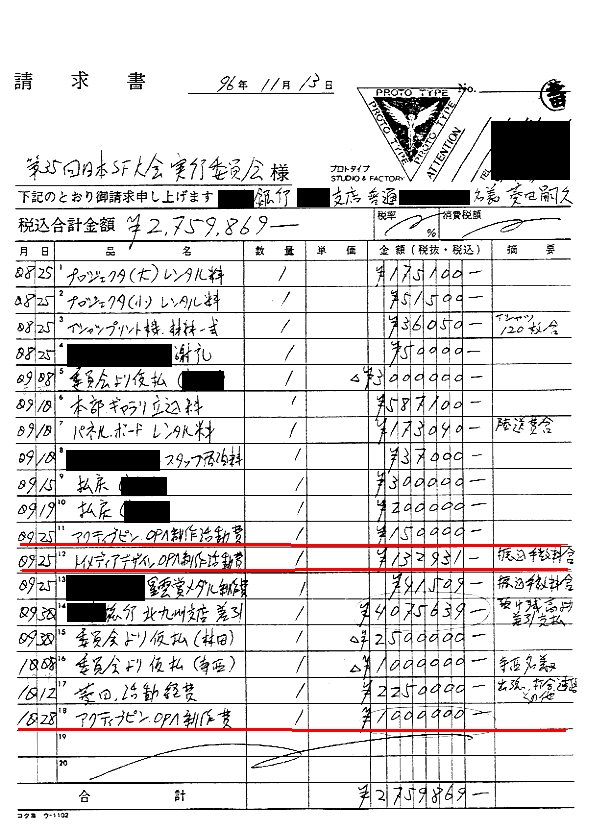 請求書
96年11月13日
No.
PROTO TYPE
PROTO TYPE
PROTO TYPE
ATTENTION
プロトタイプ
STUDIO & FACTORY
TEL
第35回日本SF大会実行委員会様
下記のとおり御請求申し上げます 銀行 支店 普通 名義 菱田嗣久
税込合計金額 ¥2,759,869— 税率 % 消費税額
月 日 品名 数量 単価 金額(税抜・税込) 摘要
08 25 1 プロジェクタ(大)レンタル料 1 ¥175100—
08 25 2 プロジェクタ(小)レンタル料 1 ¥51500—
08 25 3 Tシャツプリント 材料一式 1 ¥36050— Tシャツ120枚含
08 25 4 謝礼 1 ¥50000—
09 08 5 委員会より仮払( 1 △¥3000000—
09 10 6 本部ギャラリ立込料 1 ¥587100—
09 10 7 パネル、ボードレンタル料 1 ¥173040— 陸送費含
09 10 8 スタッフ宿泊料 1 ¥37000—
09 15 9 払戻( 1 ¥300000—
09 19 10 払戻( 1 ¥200000—
09 25 11 アクティブピン、OPA制作活動費 1 ¥150000—
09 25 12 トイメディアデザイン、OPA制作活動費 1 ¥132931— 振込手数料含
09 25 13 星雲賞メダル制作費 1 ¥41509— 振込手数料含
09 30 14 銀行 北九州支店 差引 1 ¥4075639— 預け残高より差引支払
09 30 15 委員会より仮払(林田) 1 △¥2500000—
10 08 16 委員会より仮払(寺西) 1 △¥1000000— 寺西名義
10 12 17 菱田、活動経費 1 ¥2250000— 出張、打合
10 28 18 アクティブピン、OPA制作費 1 ¥1000000—
19
20
合計 ¥2759869—
コクヨ ウ-1102